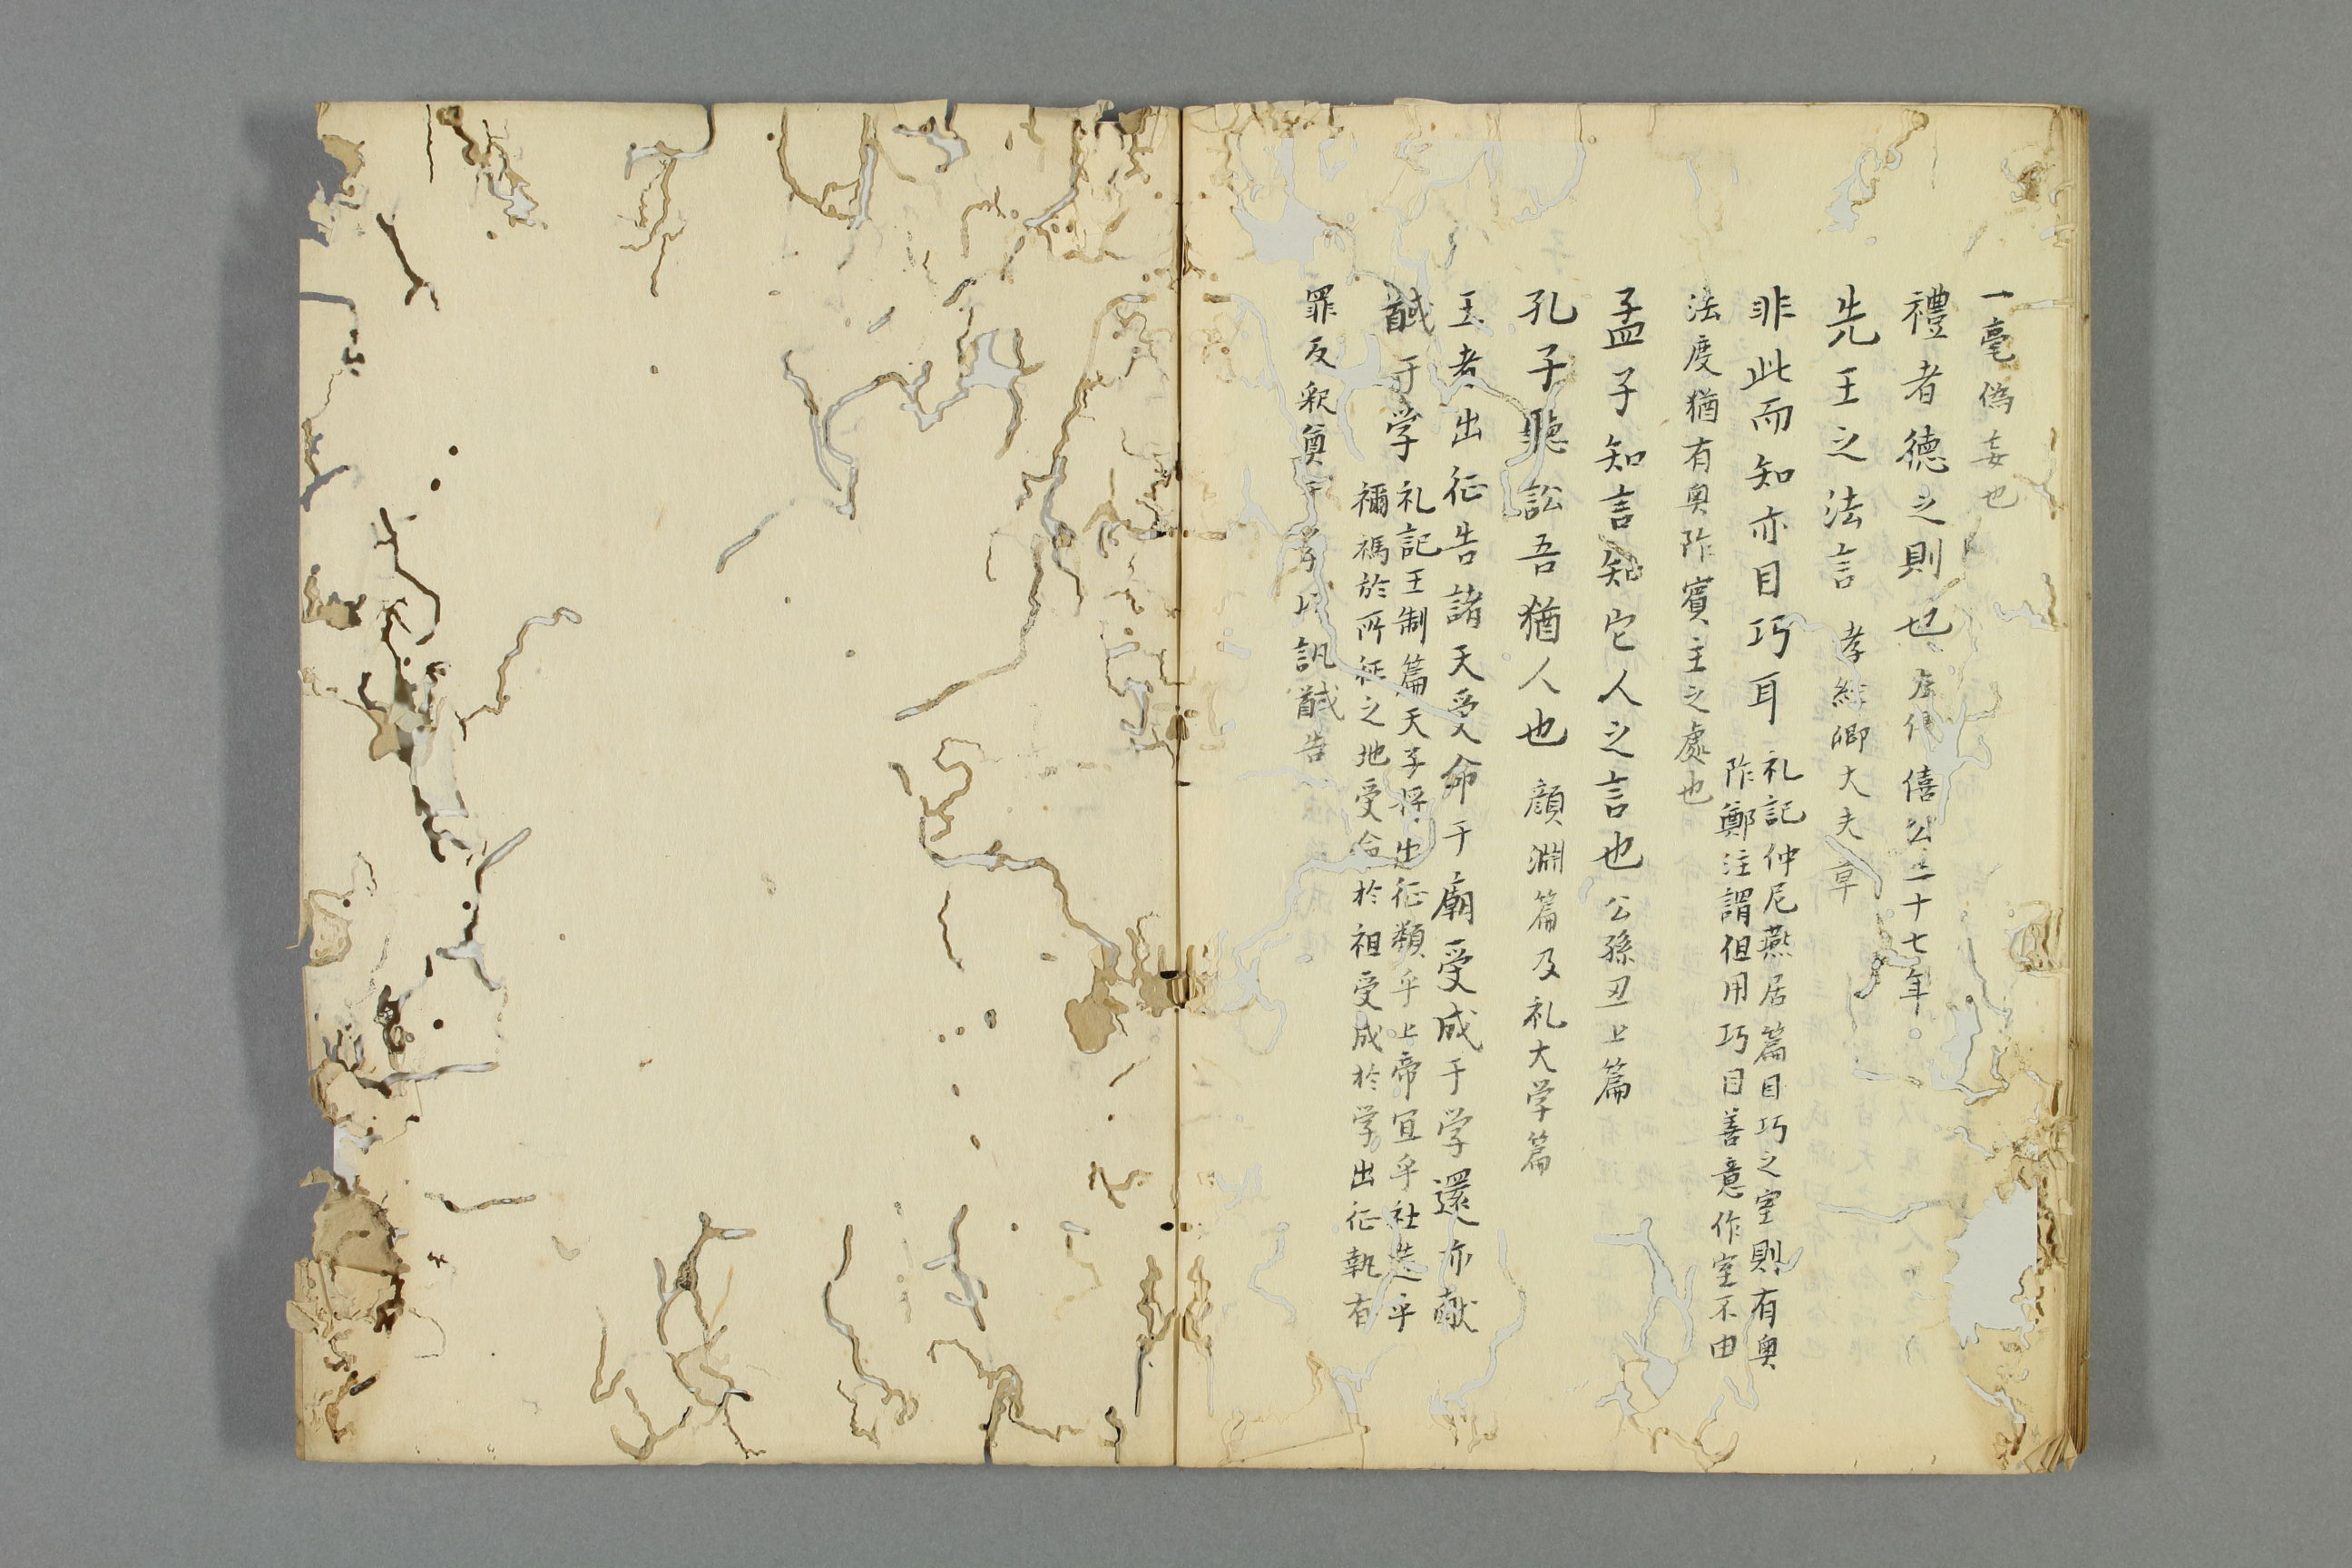 一毫偽妄也
禮者德之則也 左傳僖公二十七年。
先王之法言 孝経卿大夫章
非此而知亦目巧耳 礼記仲尼燕居篇目巧之室則有奧
阼鄭注謂但用巧目善意作室不由
法度猶有奧阼賓主之處也
孟子知言知它人之言也 公孫丑上篇
孔子聽訟吾猶人也 顔淵篇及礼大学篇
王者出征告諸天受命于廟受成于学還亦献
馘于学 礼記王制篇天子将出征類乎上帝宜乎社造乎
禰禡於所征之地受命於祖受成於学出征執有
罪反釈奠于学以訊馘告